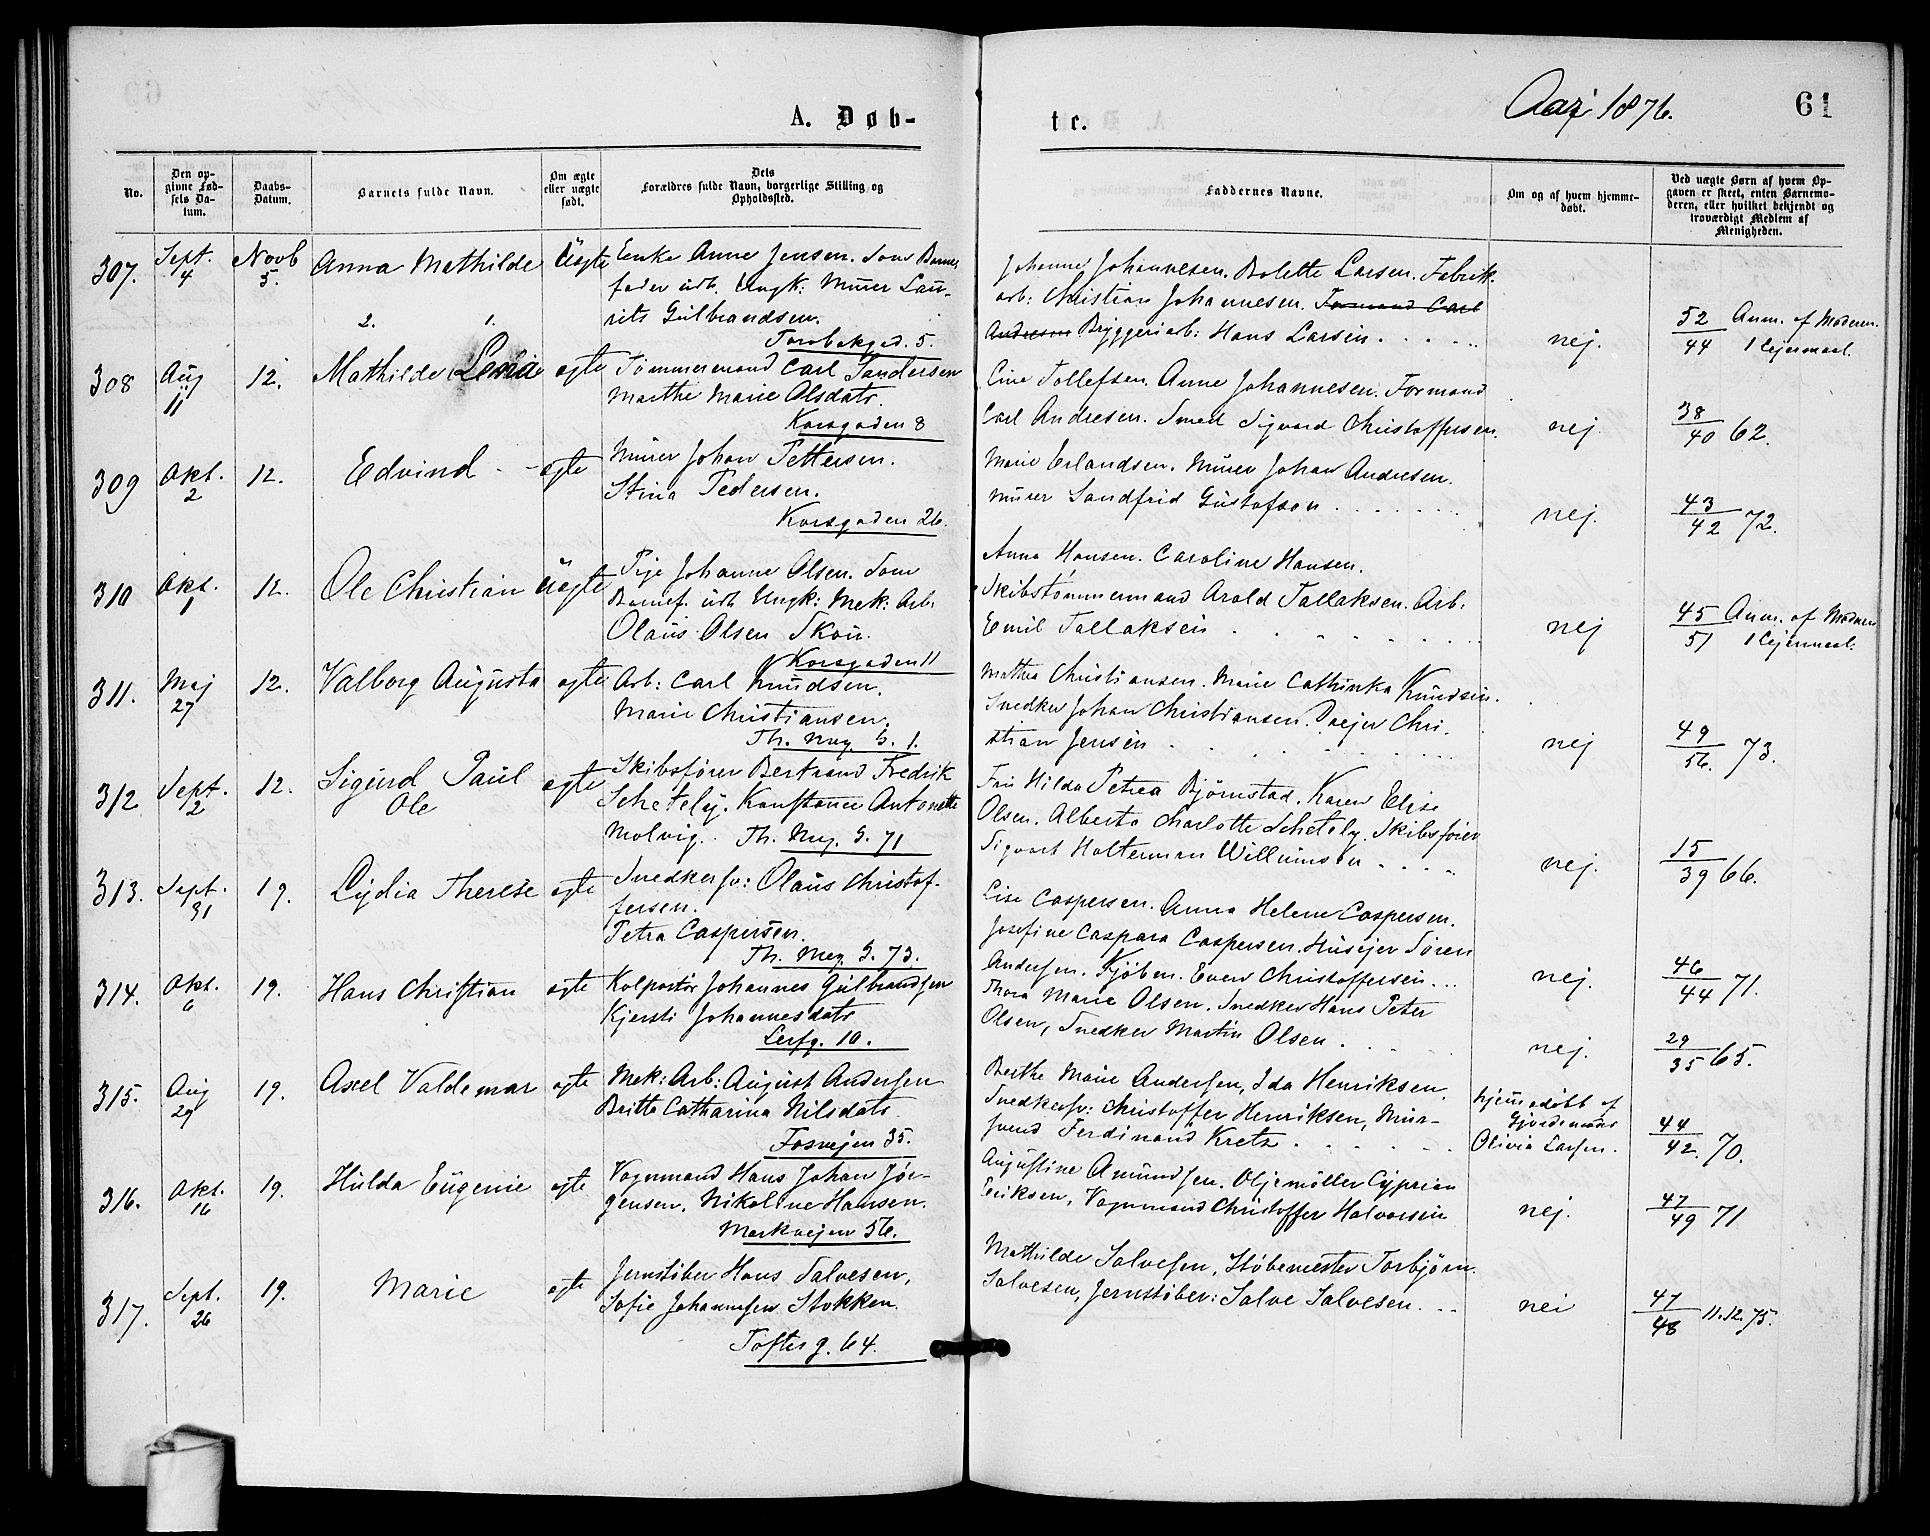 A. Døb-
te.
Aar 1876.
61
No.
Den op-
givne Fød-
sels Da-
tum.
Daabs-
Datum.
Barnets fulde Navn.
Om ægte
eller uægte
født.
Dets
Forældres fulde Navn, borgerlige Stilling og
Opholdssted.
Faddernes Navne.
Om og af hvem hjemme-
døbt.
Ved uægte Børn af hvem Op-
gaven er skeet, enten Barnemo-
deren, eller hvilket bekjendt og
troværdigt Medlem af
Menigheden.
307. Sept. 4 Novb 5. Anna Mathilde Uegte
Enke Anne Jensen. Som Barne
fader udl. Ungk: Murer Lau-
rits Gulbrandsen.
Torvbakgd. 5.
Johanne Johannesen. Bolette Larsen. Fabrik.
arb: Christian Johannesen. Formand Carl
Andresen Bryggeriarb: Hans Larsen
nej.
52/44 Anm. af Moderen.
1 Lejermaal.
308 Aug 11 12. 2. 1. Mathilde Lena egte
Tømmermand Carl Sandersen
Marthe Marie Olsdatr.
Korsgaden 8
Line Tollefsen. Anne Johannesen. Formand
Carl Andresen. Smed Sigvard Christoffersen.
nej
38/40 62.
309 Okt. 2 12. Edvind egte
Murer Johan Pettersen.
Stina Pedersen.
Korsgaden 26.
Marie Erlandsen. Murer Johan Andresen.
Murer Sandfrid Gustafson
nej.
43/42 72.
310 Okt. 1 12. Ole Christian Uegte
Pige Johanne Olsen. Som
Barnef. udl. Ungk: Mek: Arb.
Olaus Olsen Skou.
Korsgaden 11
Anna Hansen. Caroline Hansen.
Skibstømmermand Arold Tallaksen. Arb:
Emil Tallaksen
nej
45/51 Anm. af Moderen
1 Lejermaal.
311. Maj 27 12. Valborg Augusta egte
Arb: Carl Knudsen.
Marie Christiansen.
Th. Mey. G. 1.
Mathea Christiansen. Marie Cathinka Knudsen.
Snedker Johan Christiansen. Plejer Chri-
stian Jensen
nej
49/56. 73.
312 Sept. 2 12. Sigurd Paul
Ole egte
Skibsfører Bertrand Fredrik
Schetely. Konstance Antonette
Molvig. Th. Mey. G. 71
Fru Hilda Petrea Bjørnstad. Karen Elise
Olsen. Alberta Charlotte Schetely. Skibsfører
Sigvart Holterman Willumsen
nej.
15/39 66.
313. Sept. 21 19. Lydia Therese egte
Snedkersv: Olaus Christof-
fersen.
Petra Caspersen.
Th. Mey. G. 73.
Lise Caspersen. Anna Helene Caspersen.
Josefine Caspara Caspersen. Husejer Søren
Andersen. Kjøbm. Even Christoffersen
nej.
46/44 71.
314. Okt. 6 19. Hans Christian egte
Kolportør Johannes Gulbrandsen
Kjersti Johannesdatr
Lerfg. 10.
Thora Marie Olsen. Snedker Hans Peter
Olsen, Snedker Martin Olsen
nej.
29/35 65.
315. Aug 29 19. Axel Valdemar egte
Mek: Arb: August Andersen
Britta Catharina Nilsdatr.
Fosvejen 35.
Berthe Marie Andersen, Ida Henriksen.
Snedkersv: Christoffer Henriksen, Mur-
svend Ferdinand Kretz
hjemmedøbt af
Gjordemoder
Olivia Larsen.
44/42. 70.
316. Okt. 16 19. Hulda Eugenie egte
Vognmand Hans Johan Jør-
gensen. Nikoline Hansen.
Markvejen 56.
Augustine Amundsen. Oljemøller Cyprian
Eriksen, Vognmand Christoffer Halvorsen
nej.
47/49 71
317. Sept. 26 19. Marie egte
Jernstøber Hans Salvesen,
Sofie Johannesen Stokken.
Toftesg. 64.
Mathilde Salvesen, Støbemester Torbjørn
Salvesen, Jernstøber: Salve Salvesen.
nei
47/48 11.12.75.